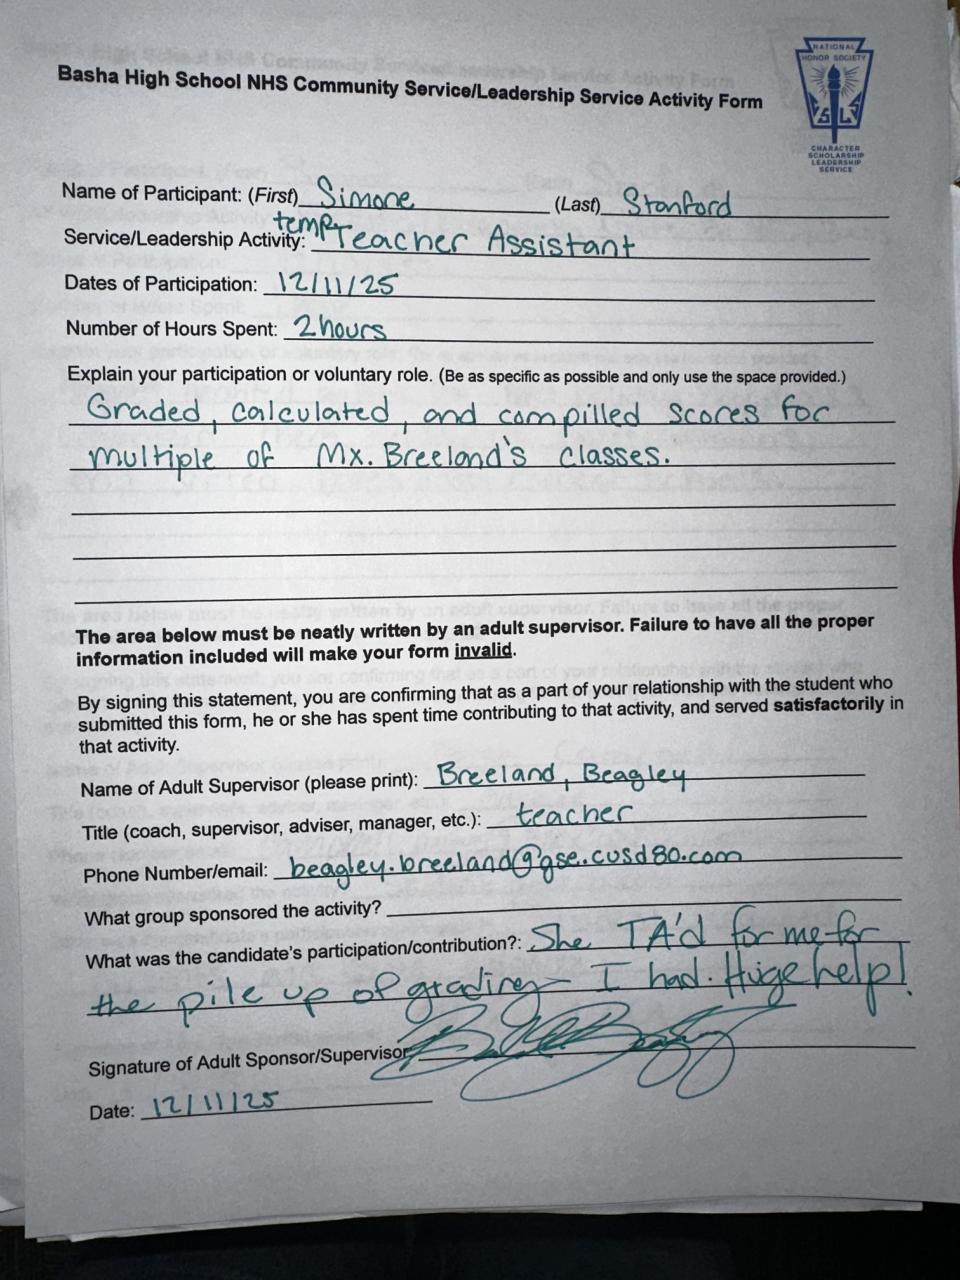 NATIONAL
HONOR SOCIETY
C S L S
CHARACTER
SCHOLARSHIP
LEADERSHIP
SERVICE
Basha High School NHS Community Service/Leadership Service Activity Form
Name of Participant: (First) Simone (Last) Stanford
temp. Teacher Assistant
Service/Leadership Activity:
Dates of Participation: 12/11/25
Number of Hours Spent: 2 hours
Explain your participation or voluntary role. (Be as specific as possible and only use the space provided.)
Graded, calculated, and compilled scores for
multiple of Mx. Breeland's classes.
The area below must be neatly written by an adult supervisor. Failure to have all the proper
information included will make your form invalid.
By signing this statement, you are confirming that as a part of your relationship with the student who
submitted this form, he or she has spent time contributing to that activity, and served satisfactorily in
that activity.
Name of Adult Supervisor (please print): Breeland, Beagley
Title (coach, supervisor, adviser, manager, etc.): teacher
Phone Number/email: beagley.breeland@gse.cusd80.com
What group sponsored the activity?
What was the candidate's participation/contribution?: She TA'd for me for
the pile up of grading I had. Huge help!
Signature of Adult Sponsor/Supervisor
Date: 12/11/25